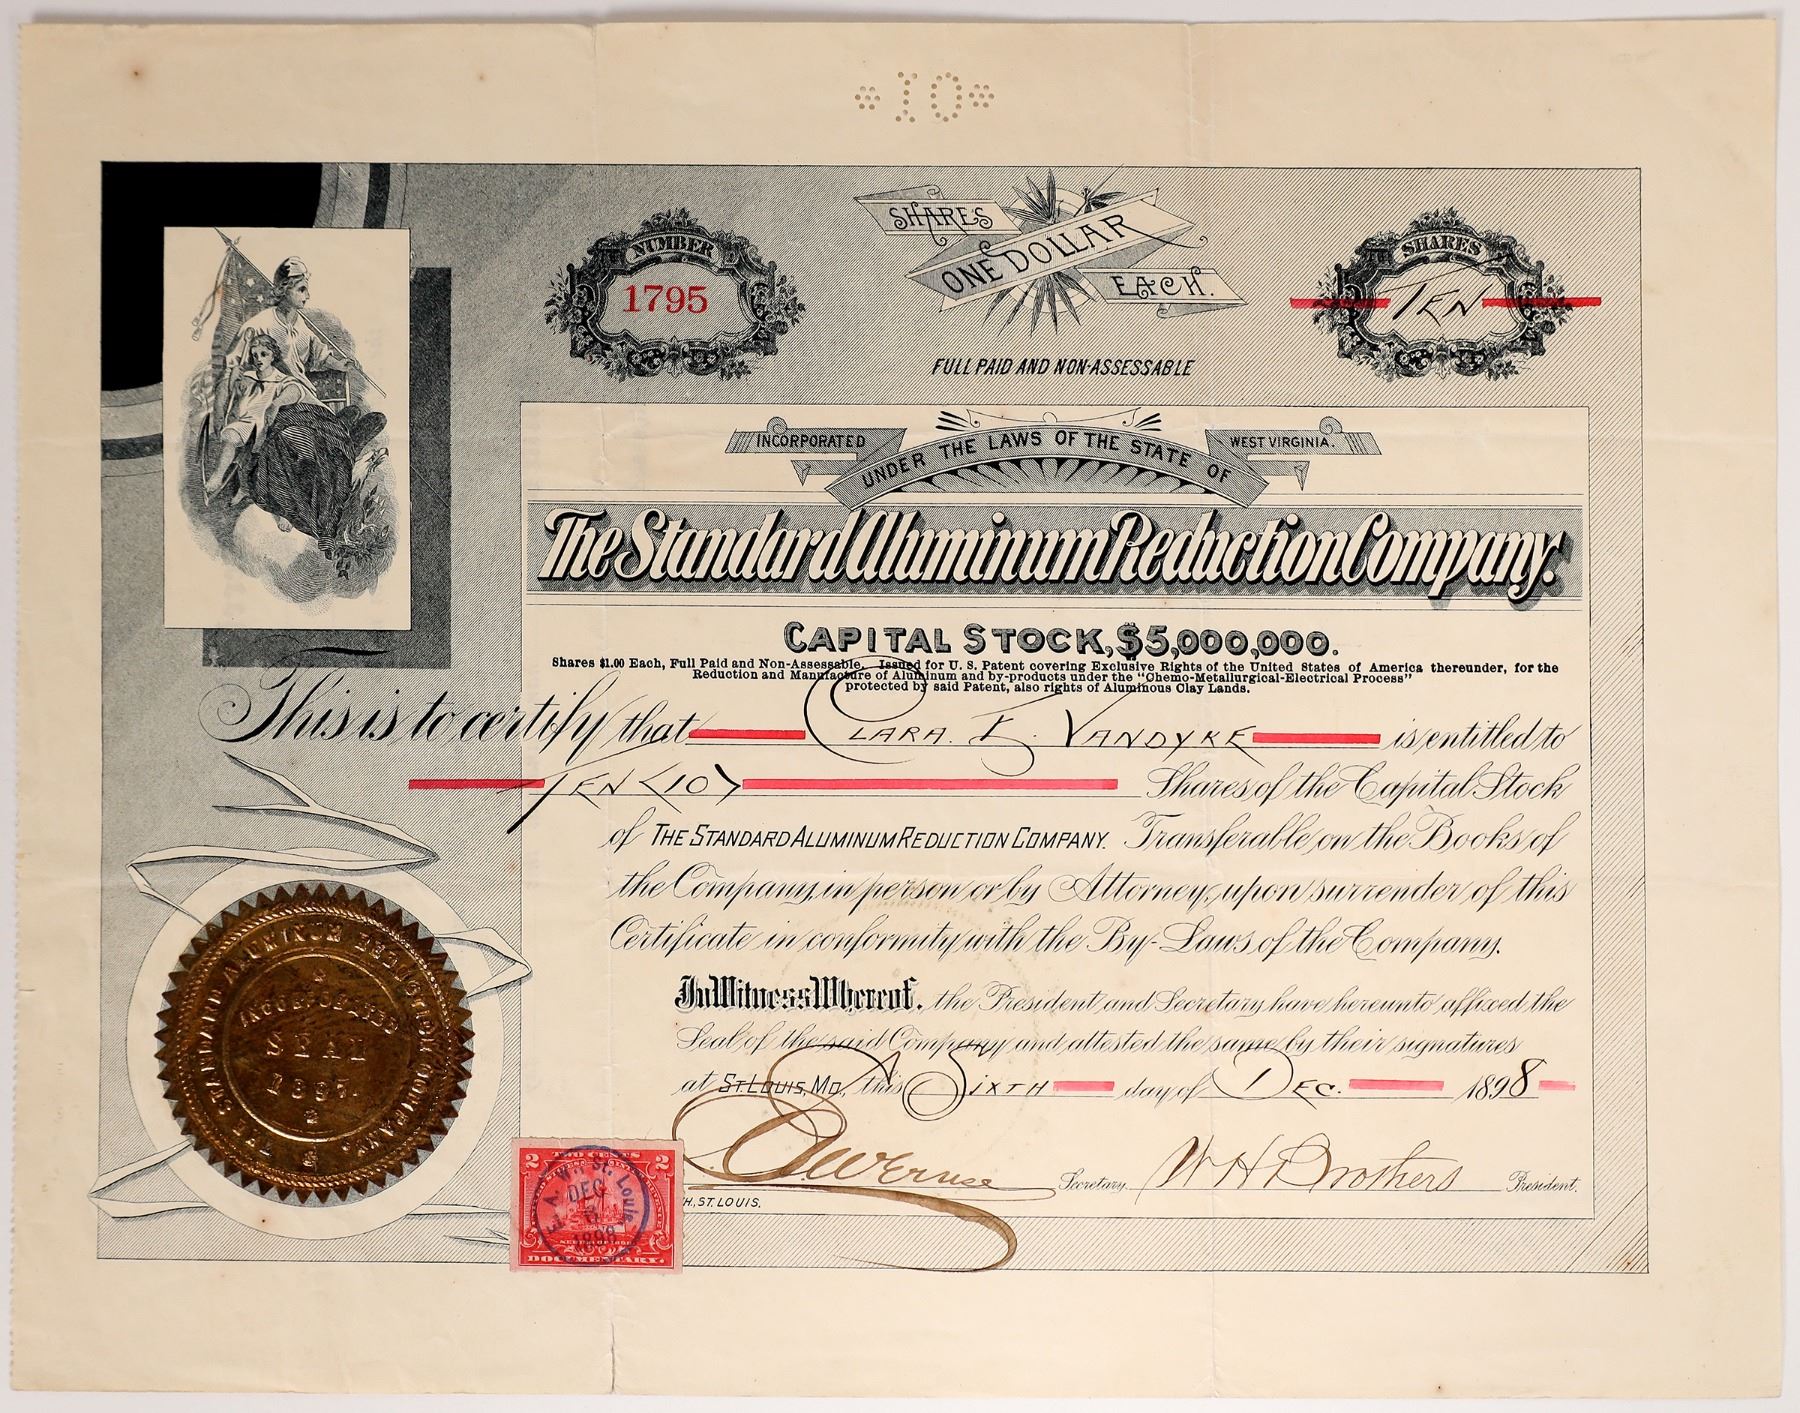 *10*
NUMBER
1795
SHARES
ONE DOLLAR
EACH.
FULL PAID AND NON-ASSESSABLE
SHARES
TEN
INCORPORATED
UNDER THE LAWS OF THE STATE OF
WEST VIRGINIA.
The Standard Aluminum Reduction Company.
CAPITAL STOCK, $5,000,000.
Shares $1.00 Each, Full Paid and Non-Assessable. Issued for U. S. Patent covering Exclusive Rights of the United States of America thereunder, for the
Reduction and Manufacture of Aluminum and by-products under the "Chemo-Metallurgical-Electrical Process"
protected by said Patent, also rights of Aluminous Clay Lands.
This is to certify that CLARA. F. VANDYKE is entitled to
TEN (10) Shares of the Capital Stock
of THE STANDARD ALUMINUM REDUCTION COMPANY. Transferable on the Books of
the Company, in person or by Attorney, upon surrender of this
Certificate in conformity with the By-Laws of the Company.
In Witness Whereof, the President and Secretary have hereunto affixed the
Seal of the said Company and attested the same by their signatures
at ST. LOUIS, MO., this SIXTH day of DEC. 1898
Secretary. W H Brothers President.
H., ST. LOUIS.
THE STANDARD ALUMINUM REDUCTION COMPANY.
INCORPORATED
SEAL
1897.
2 TWO CENTS 2
St. Louis
DEC
1898
DOCUMENTARY.